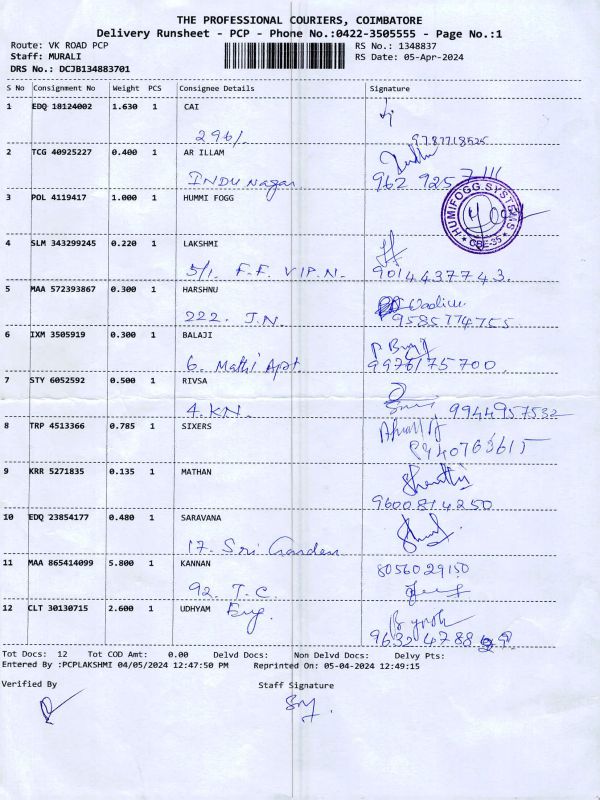 THE PROFESSIONAL COURIERS, COIMBATORE
Delivery Runsheet - PCP - Phone No.:0422-3505555 - Page No.:1
Route: VK ROAD PCP RS No.: 1348837
Staff: MURALI RS Date: 05-Apr-2024
DRS No.: DCJB134883701
S No Consignment No Weight PCS Consignee Details Signature
1 EDQ 18124002 1.630 1 CAI
296/- 9787718525
2 TCG 40925227 0.400 1 AR ILLAM
INDU Nagar 962 9257 111
3 POL 4119417 1.000 1 HUMMI FOGG
HUMIFOGG SYSTEMS
* CBE-35 *
4 SLM 343299245 0.220 1 LAKSHMI
5/1. F.F. V.I.P.N. 9014437743.
5 MAA 572393867 0.300 1 HARSHNU
222. J.N. 9585774755
6 IXM 3505919 0.300 1 BALAJI
6. Mathi Apt. 9976175700.
7 STY 6052592 0.500 1 RIVSA
4. KN. 9944957532
8 TRP 4513366 0.785 1 SIXERS
9940763615
9 KRR 5271835 0.135 1 MATHAN
Shanthi
9600814250
10 EDQ 23854177 0.480 1 SARAVANA
17. Sri Garden
11 MAA 865414099 5.800 1 KANNAN 8056029150
92. T.C.
12 CLT 30130715 2.600 1 UDHYAM Eng.
96324788
Tot Docs: 12 Tot COD Amt: 0.00 Delvd Docs: Non Delvd Docs: Delvy Pts:
Entered By :PCPLAKSHMI 04/05/2024 12:47:50 PM Reprinted On: 05-04-2024 12:49:15
Verified By Staff Signature